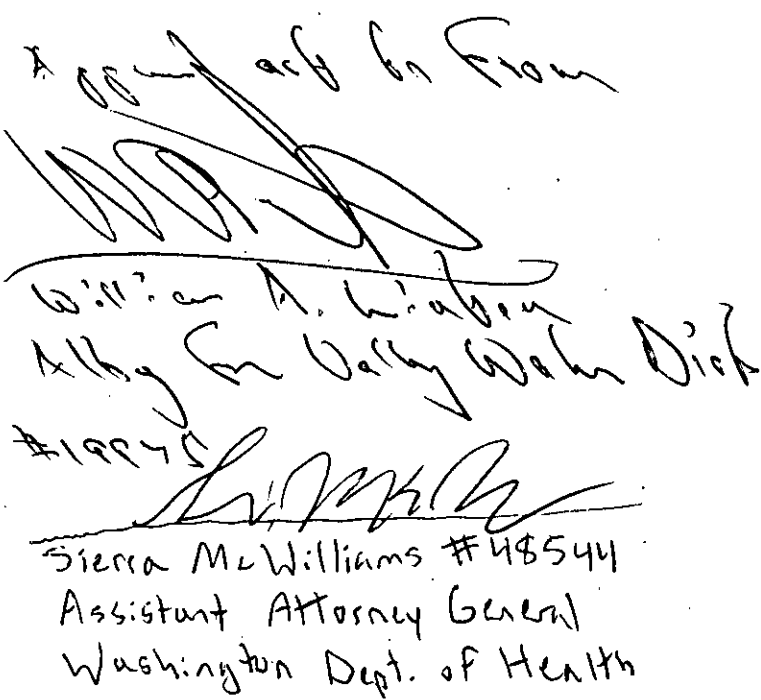 Approved as to Form
William A.
Atty for Valley Water Dist
#19975
Sierra McWilliams #48544
Assistant Attorney General
Washington Dept. of Health